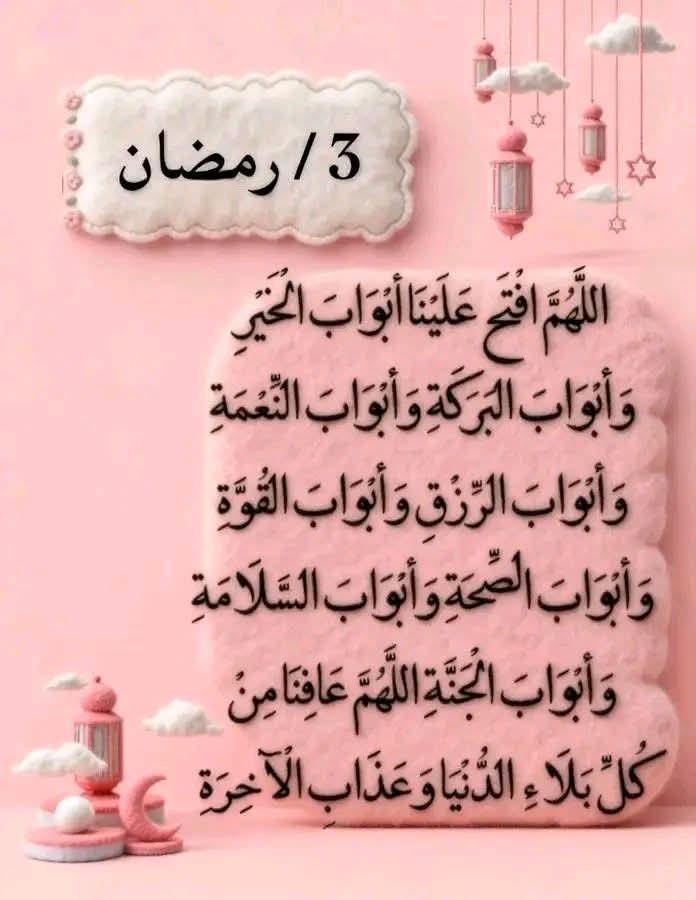 3 / رمضان
اللَّهُمَّ افْتَح عَلَيْنَا أَبْوَابَ الْخَيْرِ
وَأَبْوَابَ البَرَكَةِ وَأَبْوَابَ النِّعْمَةِ
وَأَبْوَابَ الرِّزْقِ وَأَبْوَابَ القُوَّةِ
وَأَبْوَابَ الصِّحَةِ وَأَبْوَابَ السَّلَامَةِ
وَأَبْوَابَ الْجَنَّةِ اللَّهُمَّ عَافِنَا مِنْ
كُلِّ بَلَاءِ الدُّنْيَا وَعَذَابِ الْآخِرَةِ